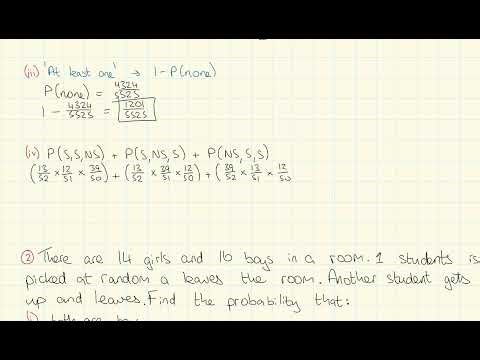 (iii) 'At least one' → 1 - P(none)
P(none) = 4324/5525
1 - 4324/5525 = 1201/5525
(iv) P(S,S,NS) + P(S,NS,S) + P(NS,S,S)
(13/52 × 12/51 × 39/50) + (13/52 × 39/51 × 12/50) + (39/52 × 13/51 × 12/50
(2) There are 14 girls and 16 boys in a room. 1 students is
picked at random a leaves the room. Another student gets
up and leaves. Find the probability that:
(i) both are boy